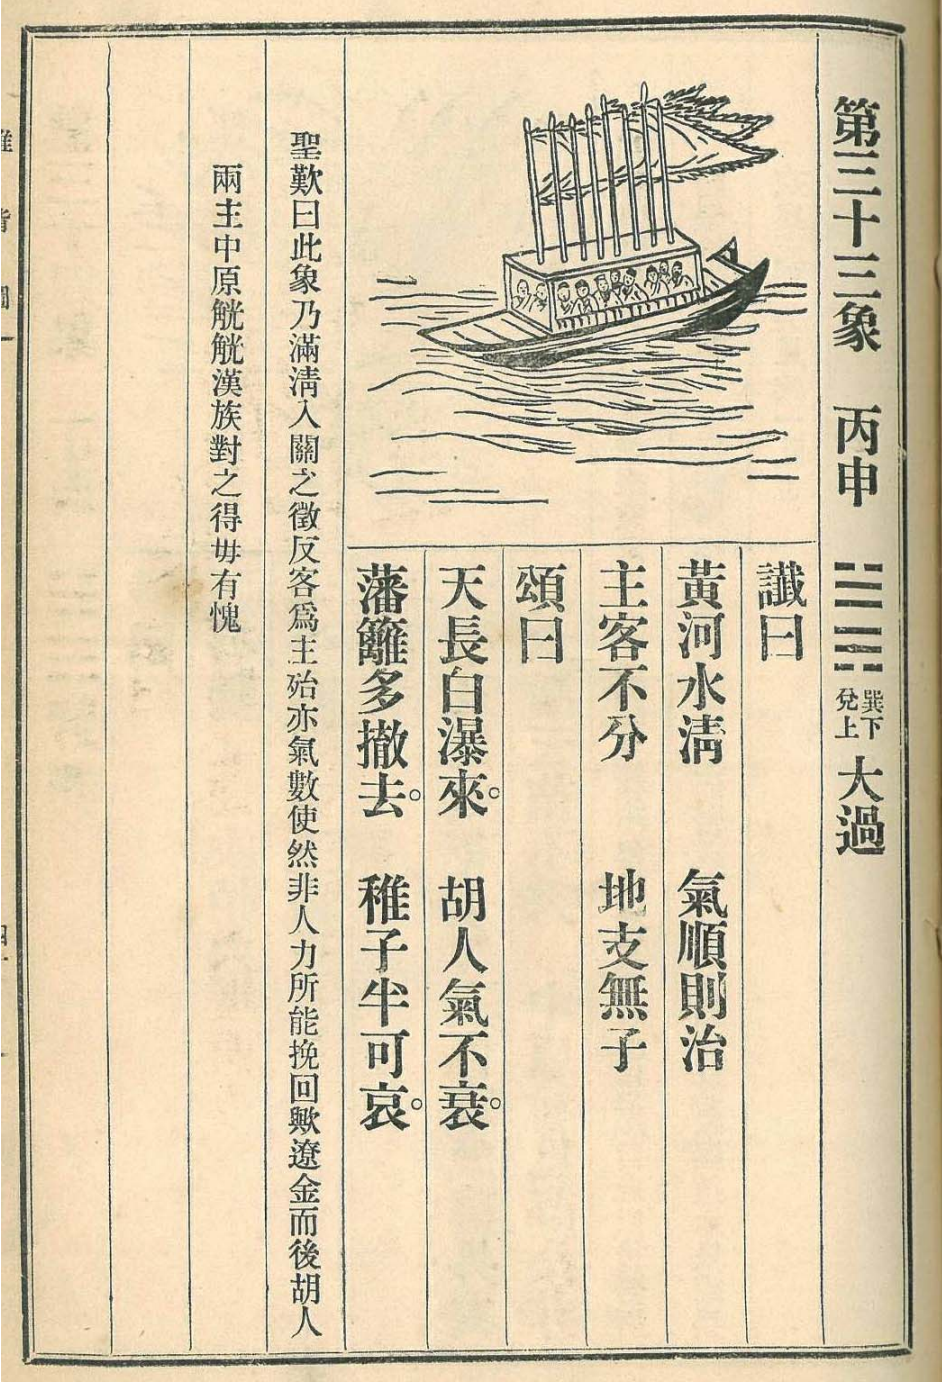 第三十三象 丙申 ䷛ 巽下兌上 大過
讖曰
黃河水清 氣順則治
主客不分 地支無子
頌曰
天長白瀑來。 胡人氣不衰。
藩籬多撤去。 稚子半可哀。
聖歎曰此象乃滿清入關之徵反客爲主殆亦氣數使然非人力所能挽回歟遼金而後胡人
兩主中原觥觥漢族對之得毋有愧